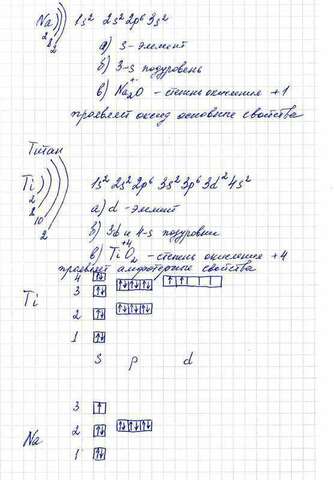 Na ) ) ) 1s² 2s² 2p⁶ 3s²
2 8 2
а) s-элемент
б) 3-s подуровень
в) Na₂⁺O - степень окисления +1
проявляет оксид основные свойства
Титан
Ti ) ) ) ) 1s² 2s² 2p⁶ 3s² 3p⁶ 3d² 4s²
2 8 10 2
а) d - элемент
б) 3d и 4-s подуровни
в) Ti⁺⁴O₂ - степень окисления +4
проявляет амфотерные свойства
4 ↑↓
3 ↑↓ ↑↓ ↑↓ ↑↓ ↑ ↑
Ti
2 ↑↓ ↑↓ ↑↓ ↑↓
1 ↑↓
s p d
3 ↑
Na 2 ↑↓ ↑↓ ↑↓ ↑↓
1 ↑↓